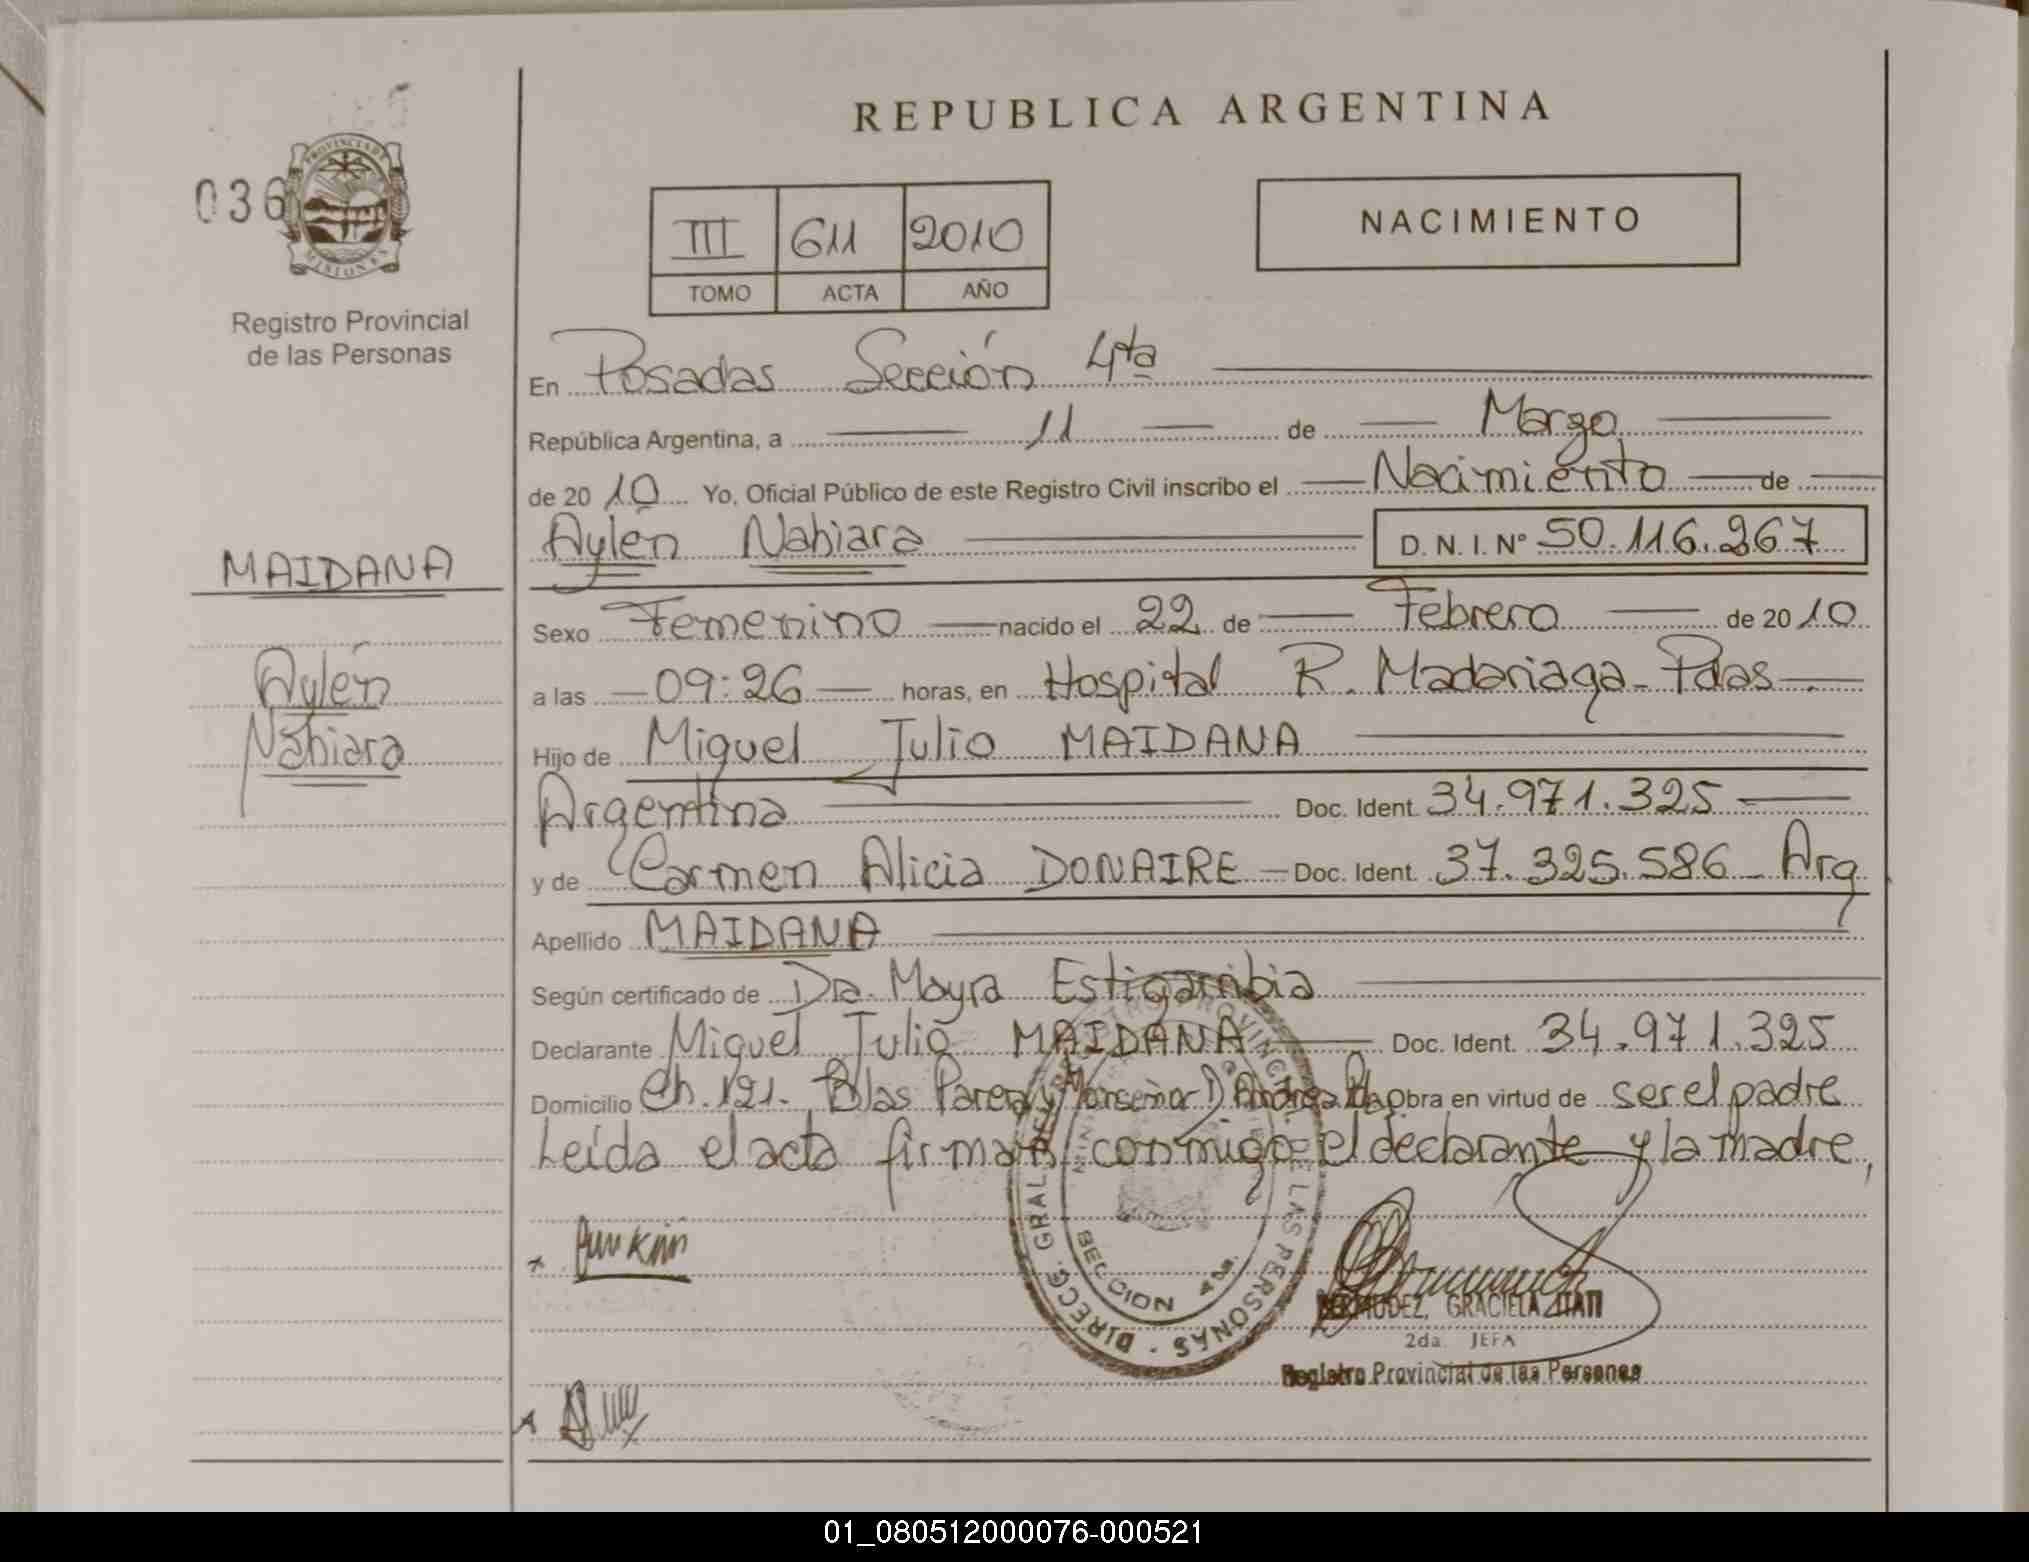 REPUBLICA ARGENTINA
036
PROVINCIA DE
MISIONES
Registro Provincial
de las Personas
III 611 2010
TOMO ACTA AÑO
NACIMIENTO
En Posadas Sección 4ta
República Argentina, a 11 de Marzo
de 2010 Yo, Oficial Público de este Registro Civil inscribo el Nacimiento de
Aylén Nahiara D. N. I. Nº 50.116.267
MAIDANA
Aylén
Nahiara
Sexo Femenino nacido el 22 de Febrero de 2010
a las 09:26 horas, en Hospital R. Madariaga - Pdas
Hijo de Miguel Julio MAIDANA
Argentina Doc. Ident. 34.971.325
y de Carmen Alicia DONAIRE Doc. Ident. 37.325.586 - Arg
Apellido MAIDANA
Según certificado de Dra. Mayra Estigarribia
Declarante Miguel Julio MAIDANA Doc. Ident. 34.971.325
Domicilio Ch. 121. Blas Parera y Monseñor D'Andrea Obra en virtud de ser el padre
Leída el acta firman conmigo el declarante y la madre,
DIRECC. GRAL. DEL REGISTRO PROVINCIAL DE LAS PERSONAS
SECCION 4ta.
BERMUDEZ, GRACIELA ITATI
2da. JEFA
Registro Provincial de las Personas
01_080512000076-000521